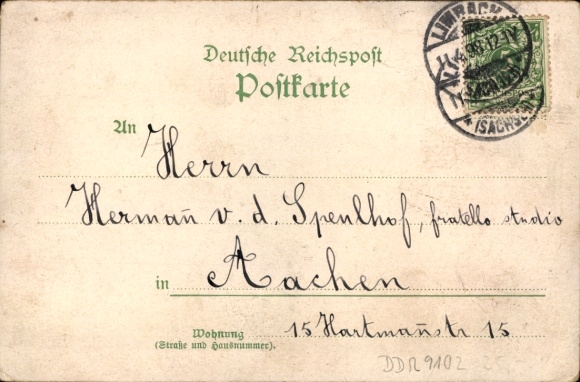 LIMBACH
(SACHSEN)
Deutsche Reichspost
Postkarte
An Herrn
Herman̄ v. d. Spenlhof, fratello studio
in Aachen
Wohnung
(Straße und Hausnummer).
15 Hartman̄str 15
DDR 9102